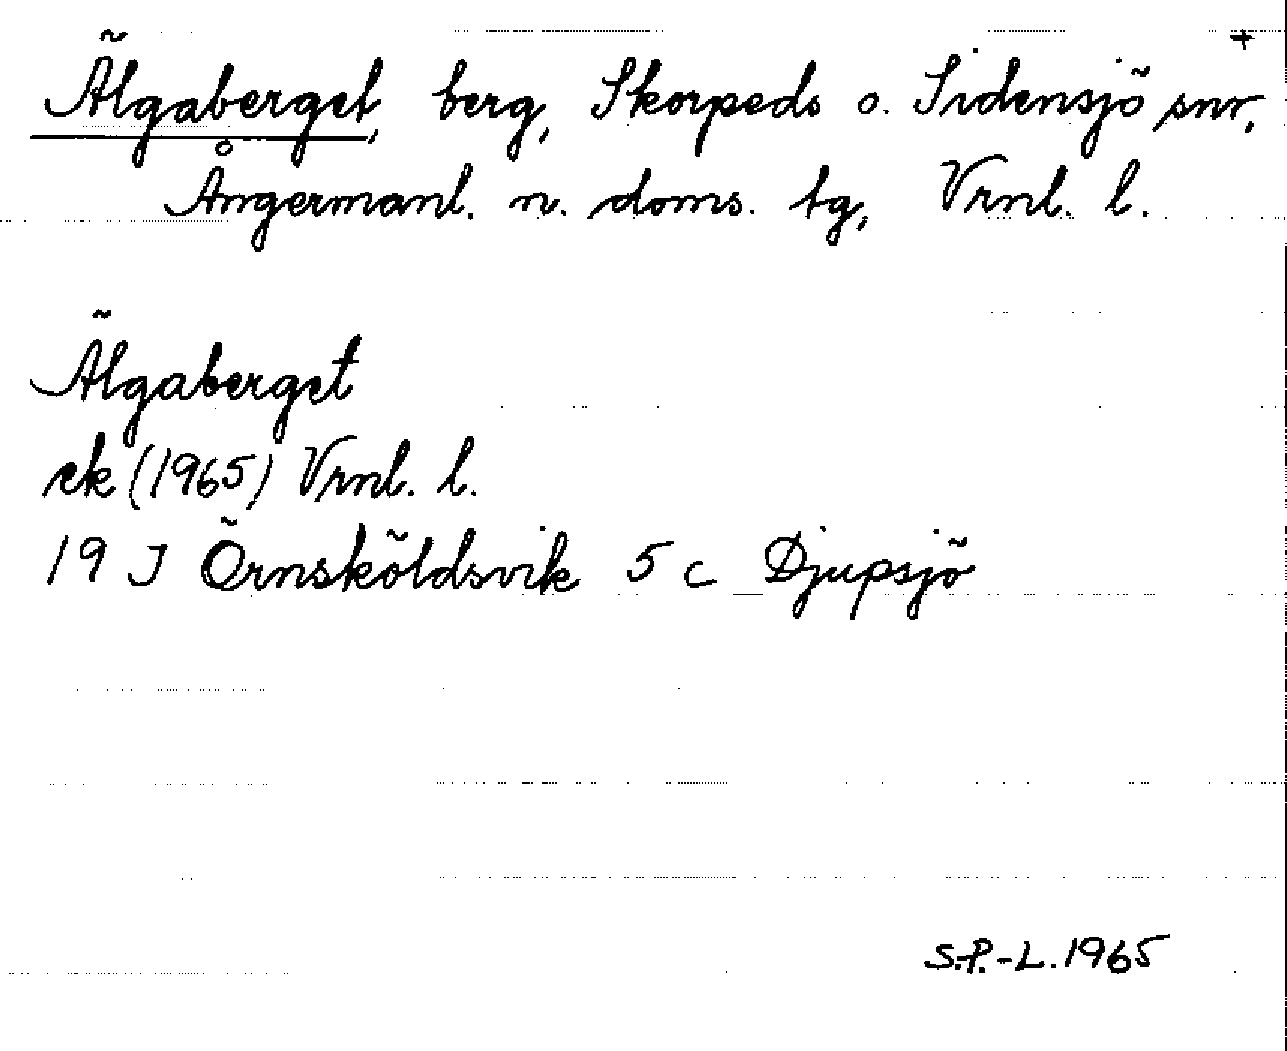 +
Älgaberget, berg, Skorpeds o. Sidensjö snr,
Ångermanl. n. doms. tg, Vrnl. l.
Älgaberget
ek (1965) Vrnl. l.
19 J Örnsköldsvik 5 c Djupsjö
S.P.-L. 1965